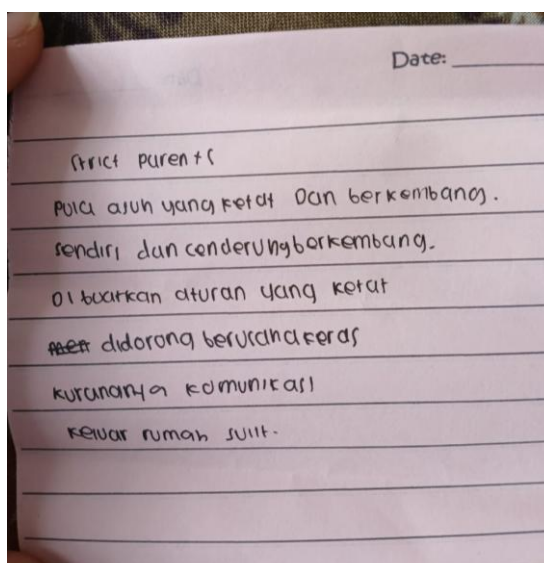 Date:
Strict parents
Pola asuh yang ketat Dan berkembang.
sendiri dan cenderung berkembang.
Di buatkan aturan yang ketat
didorong berusaha keras
kurangnya komunikasi
keluar rumah sulit.